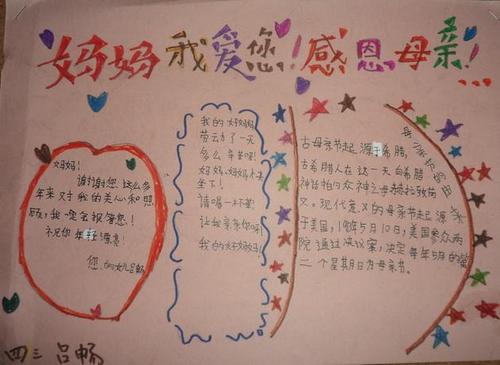 妈妈我爱您!感恩母亲!
妈妈!
谢谢您这么多
年来对我的关心和照
顾,我一定会报答您!
祝你年轻漂亮!
您的女儿吕畅
我的好妈妈
劳动了一天
多么辛苦呀!
妈妈,妈妈快
坐下!
请喝一杯茶!
让我亲亲你吧!
我的好妈妈!
母亲节的由来
古母亲节起源于希腊,
古希腊人在这一天向希腊
神话的众神之母赫拉致敬
义。现代意义的母亲节起源
于美国,5月10日,美国参众两
院通过决议案,决定每年5月的第
二个星期日为母亲节。
四三 吕畅